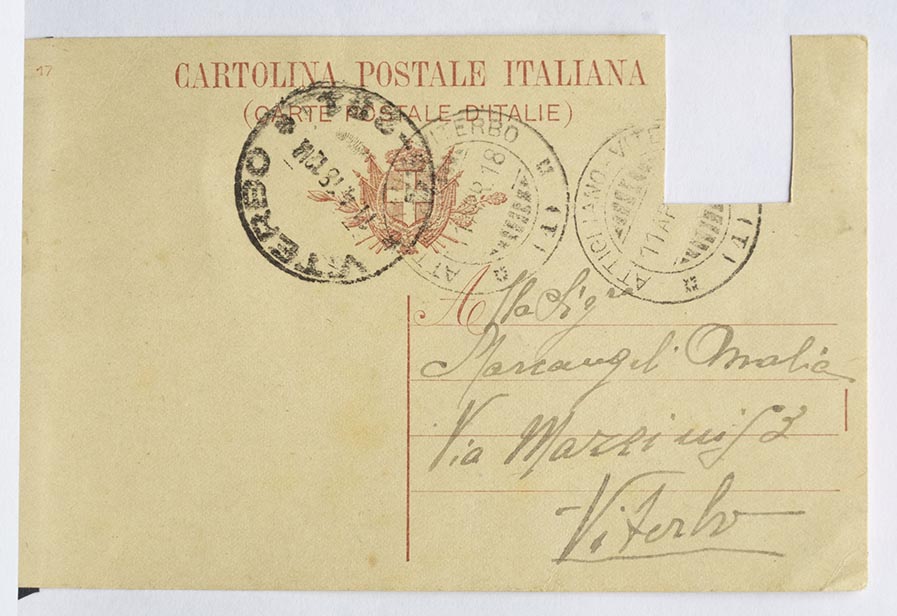 17
CARTOLINA POSTALE ITALIANA
(CARTE POSTALE D'ITALIE)
VITERBO
11.4.18
VITERBO
18
ATTIGLIANO-VIT
11 AP
Alla Sigra
Marcangeli Amalia
Via Mazzini 53
Viterbo